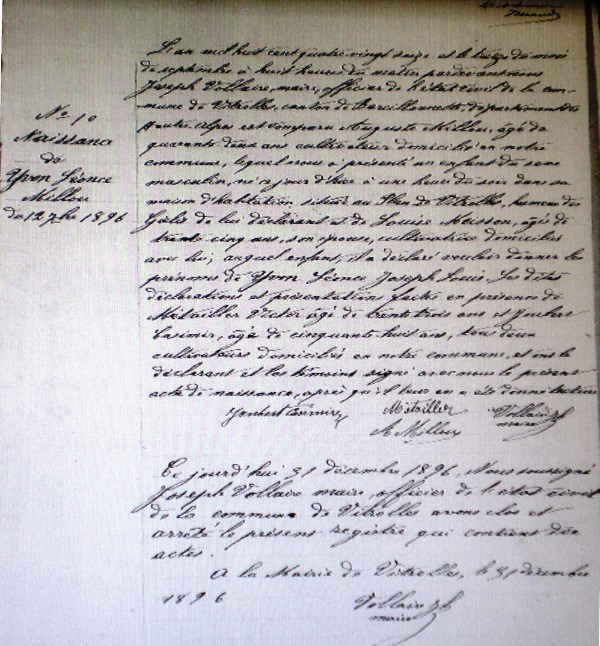 Durand
N° 10
Naissance
de
Yvon Léonce
Millou
du 12 7bre 1896
L'an mil huit cent quatre vingt seize et le treize du mois
de septembre à huit heures du matin par devant nous
Joseph Vollaire, maire, officier de l'état civil de la com-
mune de Vitrolles, canton de Barcillonnette, département des
Hautes Alpes est comparu Auguste Millou, âgé de
quarante deux ans cultivateur domicilié en notre
commune, lequel nous a présenté un enfant du sexe
masculin, né ce jour d'hier à une heure du soir dans sa
maison d'habitation située au Plan de Vitrolles, hameau des
de lui déclarant et de Louise Maisson, âgée de
trente cinq ans, son épouse, cultivatrice domiciliée
avec lui; auquel enfant, il a déclaré vouloir donner les
prénoms de Yvon Léonce Joseph Louis. Les dites
déclarations et présentations faites en présence de
Métailler Victor âgé de trente trois ans et Joubert
Casimir, âgé de cinquante huit ans, tous deux
cultivateurs domiciliés en notre commune, et ont le
déclarant et les témoins signé avec nous le présent
acte de naissance, après qu'il leur en a été donné lecture
Joubert Casimir Métailler Vollaire Jh
A Millou maire
Ce jourd'hui 31 décembre 1896, Nous soussigné
Joseph Vollaire maire, officier de l'état civil
de la commune de Vitrolles avons clos et
arrêté le présent registre qui contient dix
actes.
A la Mairie de Vitrolles, le 31 décembre
1896 Vollaire Jh
maire